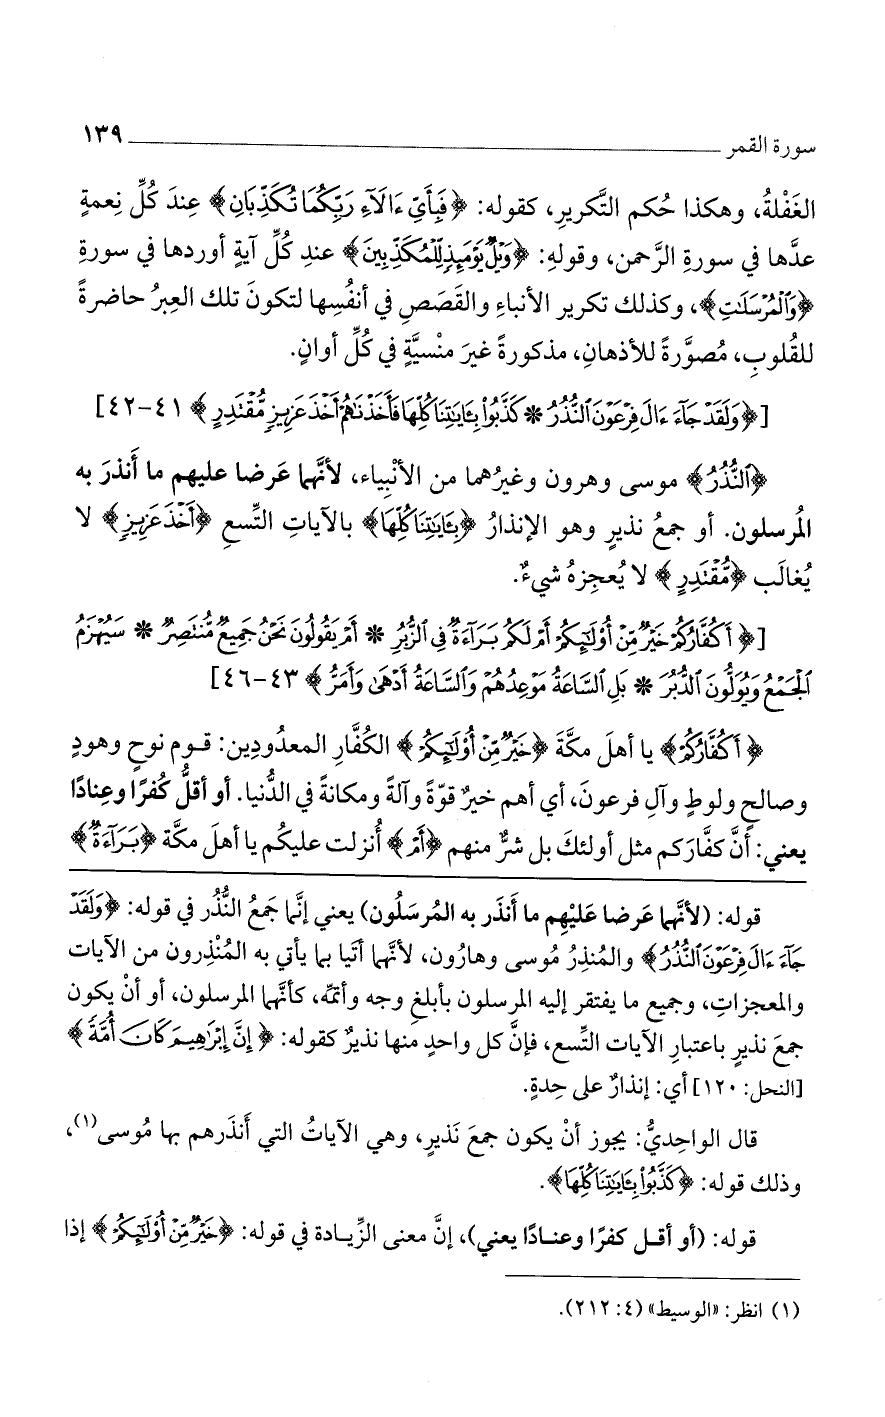 سورة القمر ١٣٩
الغَفْلةُ، وهكذا حُكم التَّكريرِ، كقوله: ﴿فَبِأَيِّ ءَالَآءِ رَبِّكُمَا تُكَذِّبَانِ﴾ عِندَ كُلِّ نِعمةٍ
عدَّها في سورةِ الرَّحمن، وقولهِ: ﴿وَيْلٌ يَوْمَئِذٍ لِّلْمُكَذِّبِينَ﴾ عندِ كُلِّ آيةٍ أوردها في سورةِ
﴿وَٱلْمُرْسَلَٰتِ﴾، وكذلك تكرير الأنباءِ والقَصَصِ في أنفُسِها لتكونَ تلك العِبرُ حاضرةً
للقُلوبِ، مُصوَّرةً للأذهانِ، مذكورةً غيرَ منْسيَّةٍ في كُلِّ أوانٍ.
[﴿وَلَقَدْ جَآءَ ءَالَ فِرْعَوْنَ ٱلنُّذُرُ * كَذَّبُوا۟ بِـَٔايَٰتِنَا كُلِّهَا فَأَخَذْنَٰهُمْ أَخْذَ عَزِيزٍ مُّقْتَدِرٍ﴾ ٤١-٤٢]
﴿ٱلنُّذُرُ﴾ موسى وهرون وغيرُهما من الأنْبِياء، لأنَّهما عَرضا عليهم ما أَنذرَ به
المُرسلون. أو جمعُ نذيرٍ وهو الإنذارُ ﴿بِـَٔايَٰتِنَا كُلِّهَا﴾ بالآياتِ التِّسعِ ﴿أَخْذَ عَزِيزٍ﴾ لا
يُغالَب ﴿مُّقْتَدِرٍ﴾ لا يُعجِزهُ شيءٌ.
[﴿أَكُفَّارُكُمْ خَيْرٌ مِّنْ أُو۟لَٰٓئِكُمْ أَمْ لَكُم بَرَآءَةٌ فِى ٱلزُّبُرِ * أَمْ يَقُولُونَ نَحْنُ جَمِيعٌ مُّنتَصِرٌ * سَيُهْزَمُ
ٱلْجَمْعُ وَيُوَلُّونَ ٱلدُّبُرَ * بَلِ ٱلسَّاعَةُ مَوْعِدُهُمْ وَٱلسَّاعَةُ أَدْهَىٰ وَأَمَرُّ﴾ ٤٣-٤٦]
﴿أَكُفَّارُكُمْ﴾ يا أهلَ مكَّةَ ﴿خَيْرٌ مِّنْ أُو۟لَٰٓئِكُمْ﴾ الكُفَّارِ المعدُودِين: قوم نوحٍ وهودٍ
وصالحٍ ولوطٍ وآلِ فرعونَ، أي أهم خيرٌ قوّةً وآلةً ومكانةً في الدُّنيا. أو أقلُّ كُفرًا وعِنادًا
يعني: أنَّ كفَّارَكم مثل أولئكَ بل شرٌّ منهم ﴿أَمْ﴾ أُنزلت عليكُم يا أهلَ مكَّة ﴿بَرَآءَةٌ﴾
قوله: (لأنَّهما عَرضا عَليْهِم ما أَنذر به المرسَلُون) يعني إنَّما جَمعُ النُّذُر في قوله: ﴿وَلَقَدْ
جَآءَ ءَالَ فِرْعَوْنَ ٱلنُّذُرُ﴾ والمُنذِرُ مُوسى وهارُون، لأنَّهما أتَيا بما يأتي به المُنْذِرون من الآيات
والمعجزاتِ، وجميع ما يفتقر إليه المرسلون بأبلغِ وجه وأتمِّه، كأنَّهما المرسلون، أو أنْ يكون
جمعَ نذيرٍ باعتبارِ الآيات التِّسع، فإنَّ كل واحدٍ منها نذيرٌ كقوله: ﴿إِنَّ إِبْرَٰهِيمَ كَانَ أُمَّةً﴾
[النحل: ١٢٠] أي: إنذارٌ على حِدةٍ.
قال الواحِديُّ: يجوز أنْ يكون جمعَ نَذيرٍ، وهي الآياتُ التي أَنذَرهم بها مُوسى(١)،
وذلك قوله: ﴿كَذَّبُوا۟ بِـَٔايَٰتِنَا كُلِّهَا﴾.
قوله: (أو أقل كفرًا وعنادًا يعني)، إنَّ معنى الزِّيادة في قوله: ﴿خَيْرٌ مِّنْ أُو۟لَٰٓئِكُمْ﴾ إذا
(١) انظر: «الوسيط» (٤: ٢١٢).